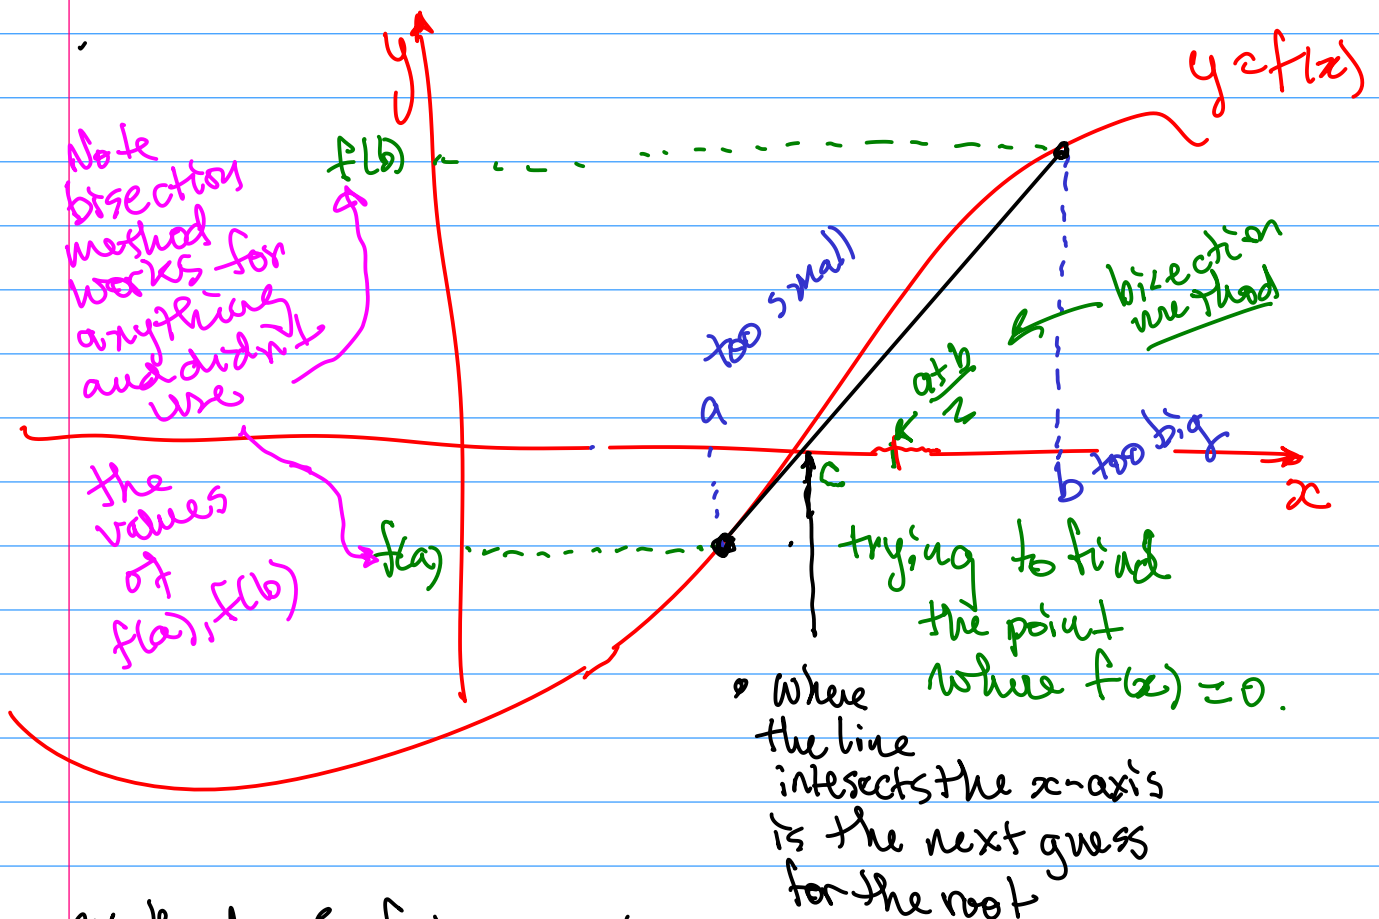 y
y=f(x)
Note
bisection
method
works for
anything
and didn't
use
the
values
of
f(a), f(b)
f(b)
f(a)
too small
a
bisection
method
a+b
2
c
b
too big
x
trying to find
the point
where f(x)=0.
• where
the line
intesects the x-axis
is the next guess
for the root